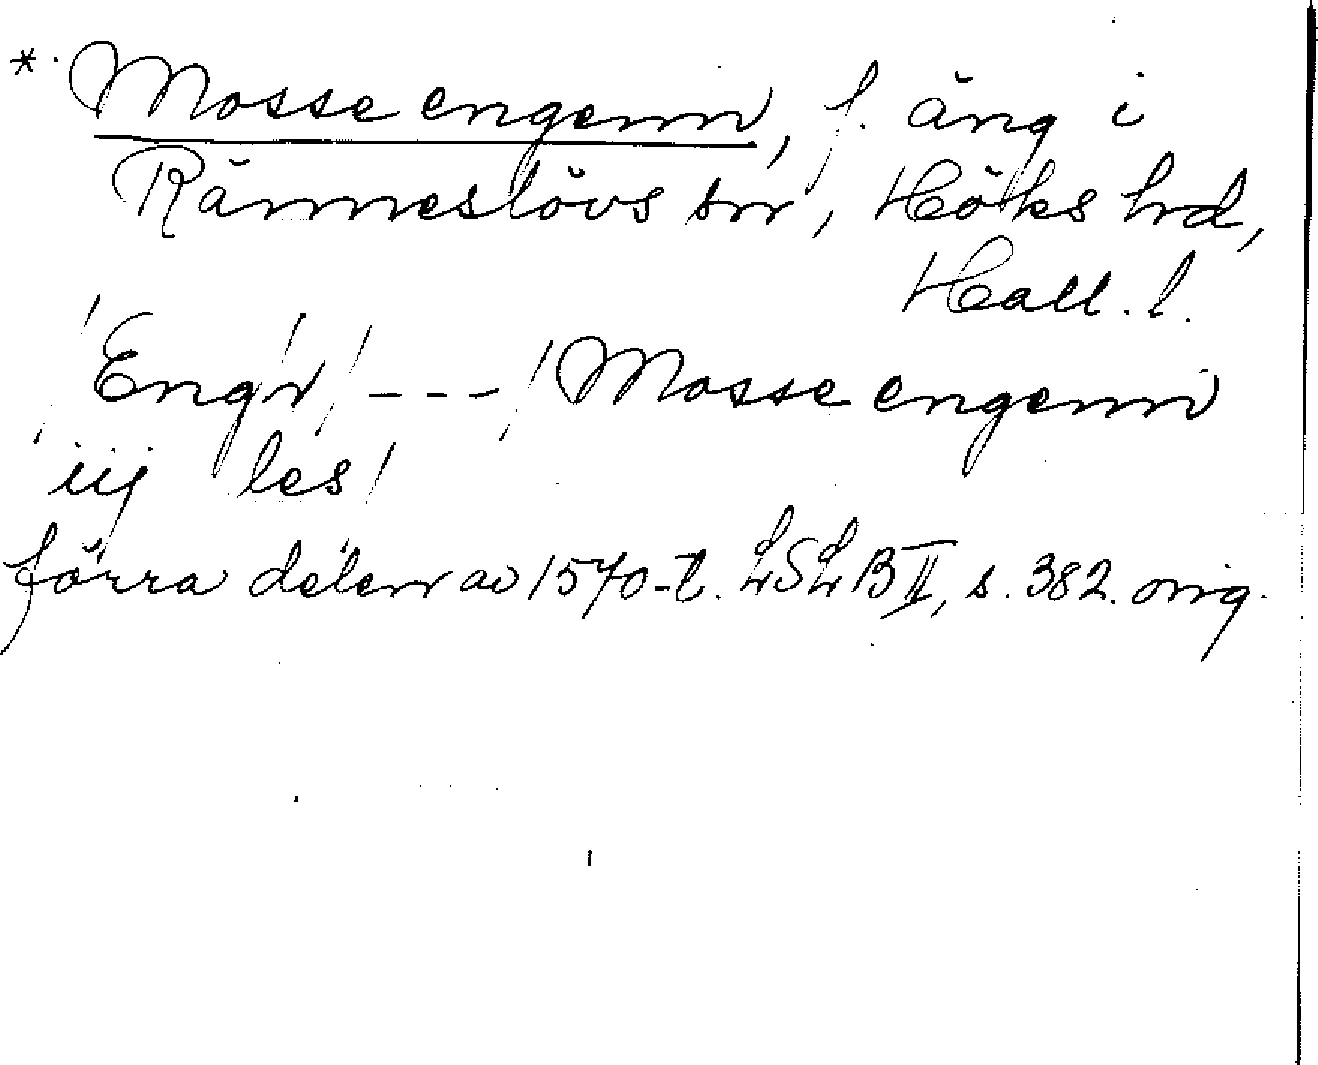 * Mosse engenn, f. äng i
Ränneslövs sn, Höks hd,
Hall. l.
/Eng/r/ --- / Mosse engenn
iij les/
förra delen av 1570-t. LSLB II, s. 382. orig.